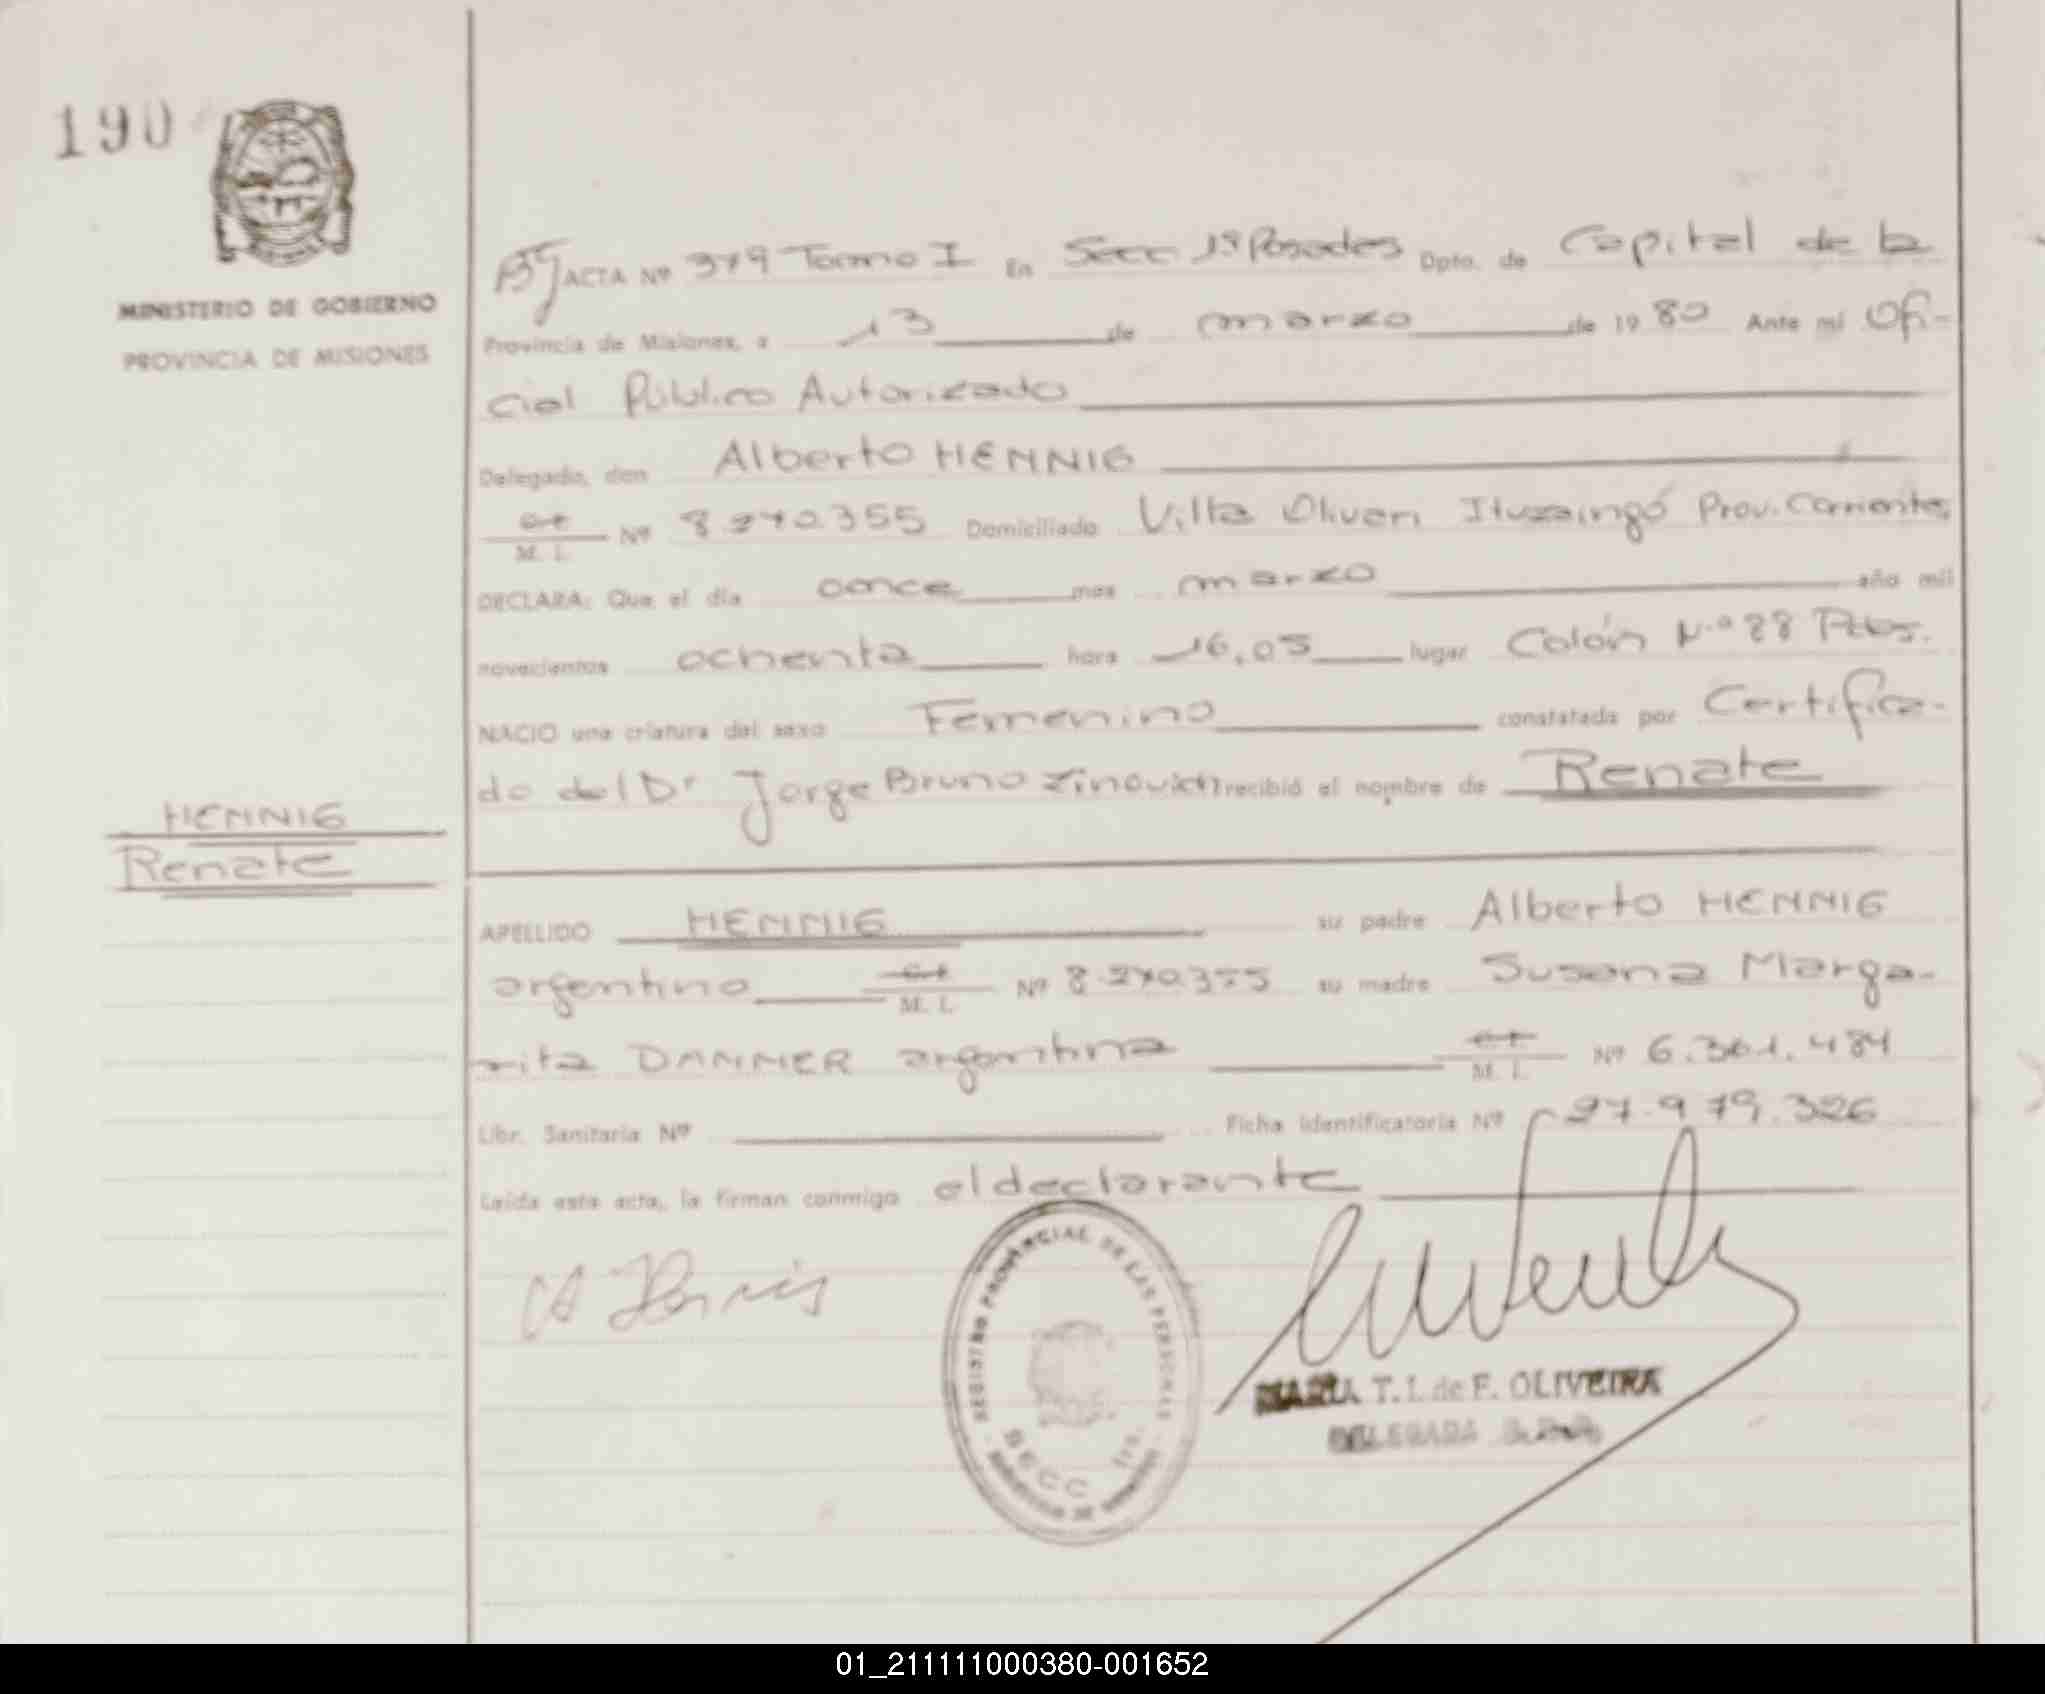 190
MINISTERIO DE GOBIERNO
PROVINCIA DE MISIONES
ACTA Nº 379 Tomo I En Secc 1ª Posadas Dpto. de Capital de la
Provincia de Misiones, a 13 de marzo de 1980 Ante mí Ofi-
cial Público Autorizado
Delegado, don Alberto HENNIG
M. I. Nº 8.270.355 Domiciliado Villa Olivari Ituzaingó Prov. Corrientes
DECLARA: Que el día once mes marzo año mil
novecientos ochenta hora 16,05 lugar Colón N.º 88 Pdas.
NACIO una criatura del sexo Femenino constatada por Certifica-
do del Dr Jorge Bruno Zinovich recibió el nombre de Renate
HENNIG
Renate
APELLIDO HENNIG su padre Alberto HENNIG
argentino M. I. Nº 8.270.355 su madre Susana Marga-
rita DANNER argentina M. I. Nº 6.361.484
Libr. Sanitaria Nº Ficha identificatoria Nº 27.979.326
Leída esta acta, la firman conmigo el declarante
REGISTRO PROVINCIAL DE LAS PERSONAS
SECC 1ra.
MARIA T. I. de F. OLIVEIRA
DELEGADA
01_211111000380-001652